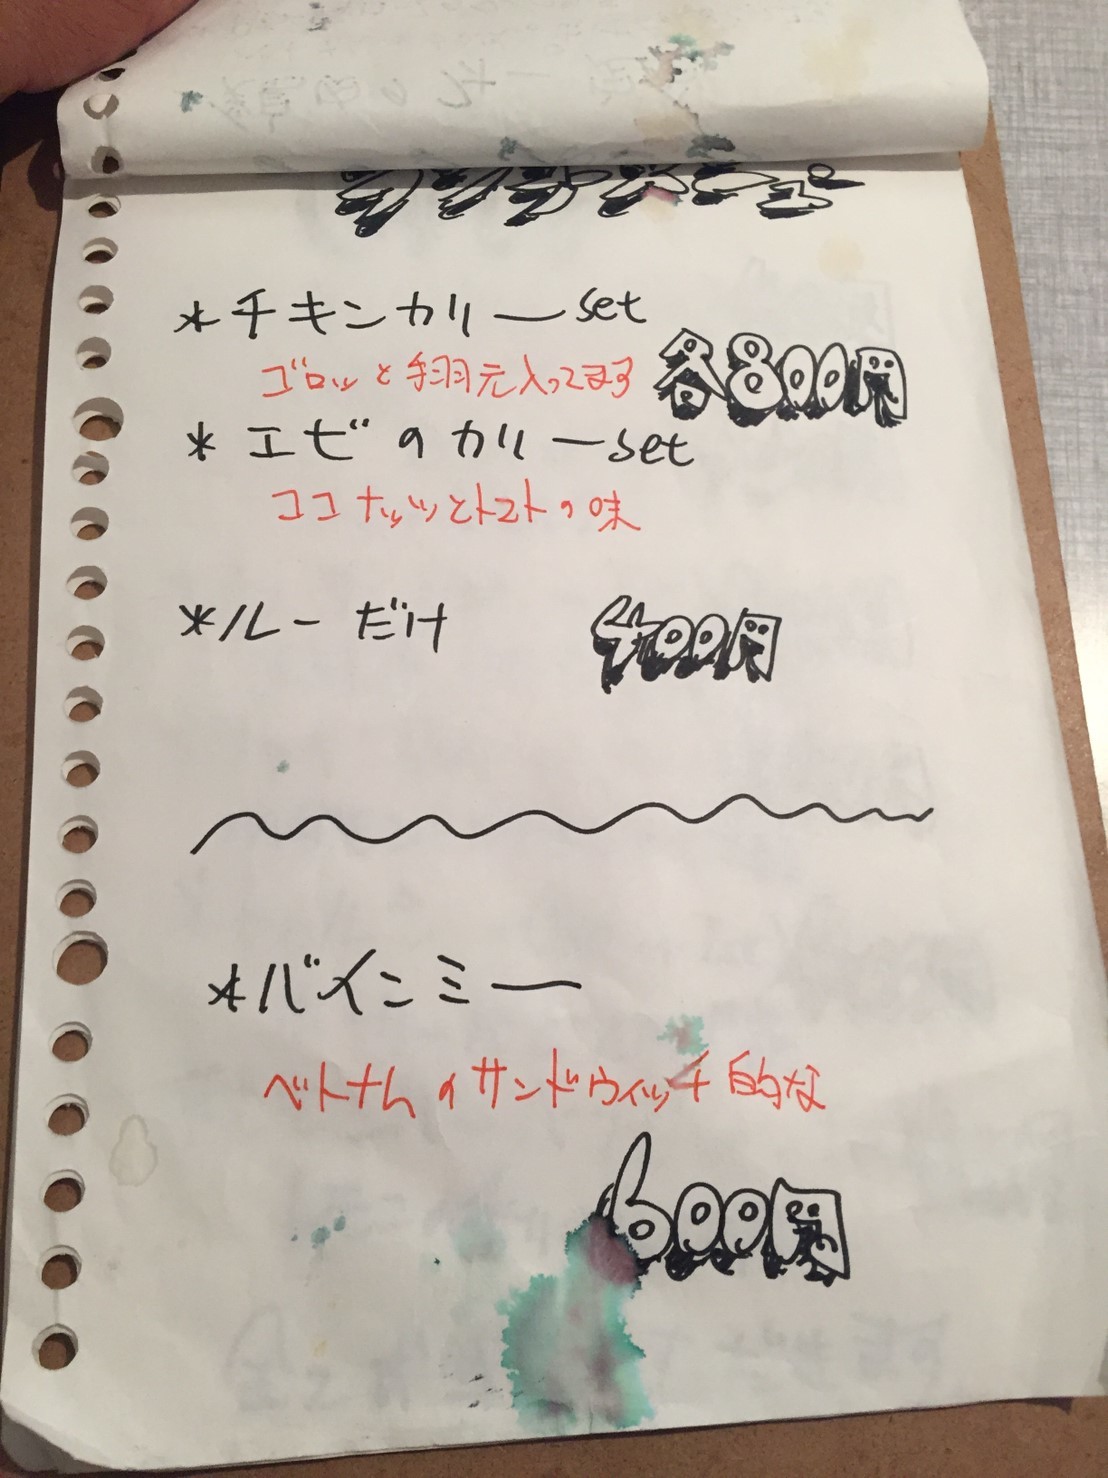 *チキンカリーset
ゴロッと手羽元入ってます
各800円
*エビのカリーset
ココナッツとトマトの味
*ルーだけ
400円
*バインミー
ベトナムのサンドウィッチ的な
600円